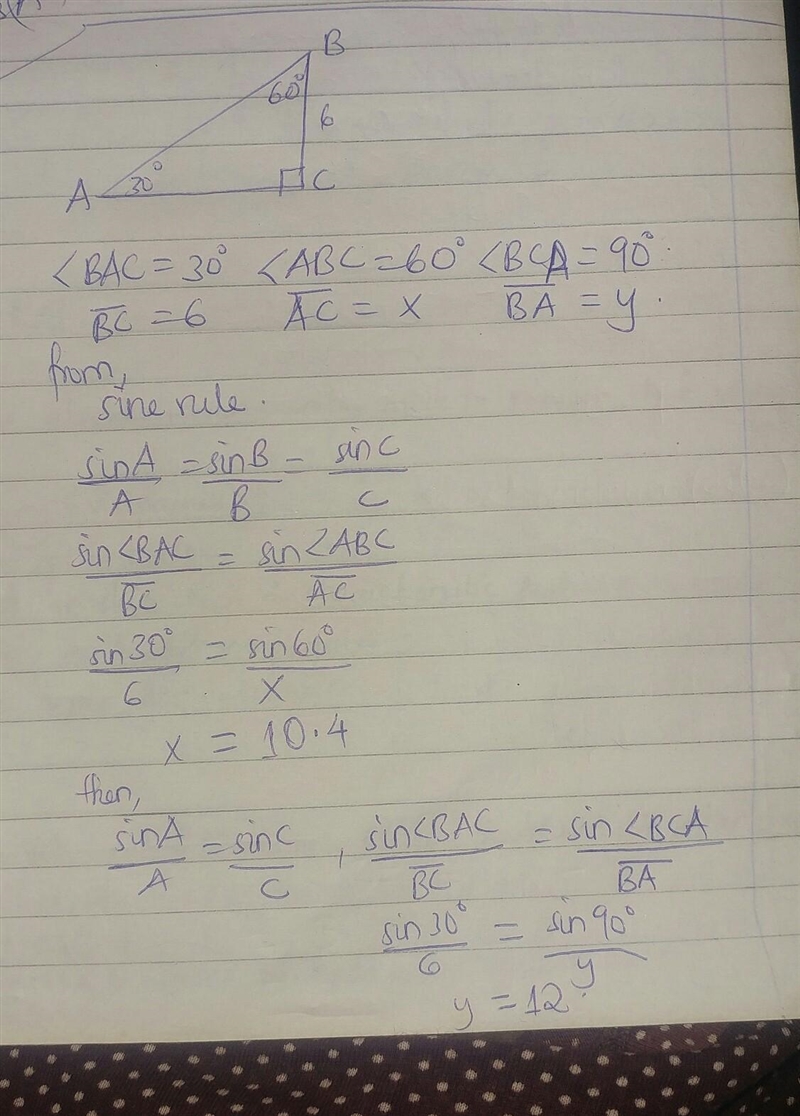 B
60°
6
A 30° C
<BAC = 30° <ABC = 60° <BCA = 90°.
BC = 6 AC = x BA = y.
from,
sine rule.
sinA/A = sinB/B = sinC/C
sin<BAC/BC = sin<ABC/AC
sin30°/6 = sin60°/x
x = 10.4
then,
sinA/A = sinC/C , sin<BAC/BC = sin<BCA/BA
sin30°/6 = sin90°/y
y = 12